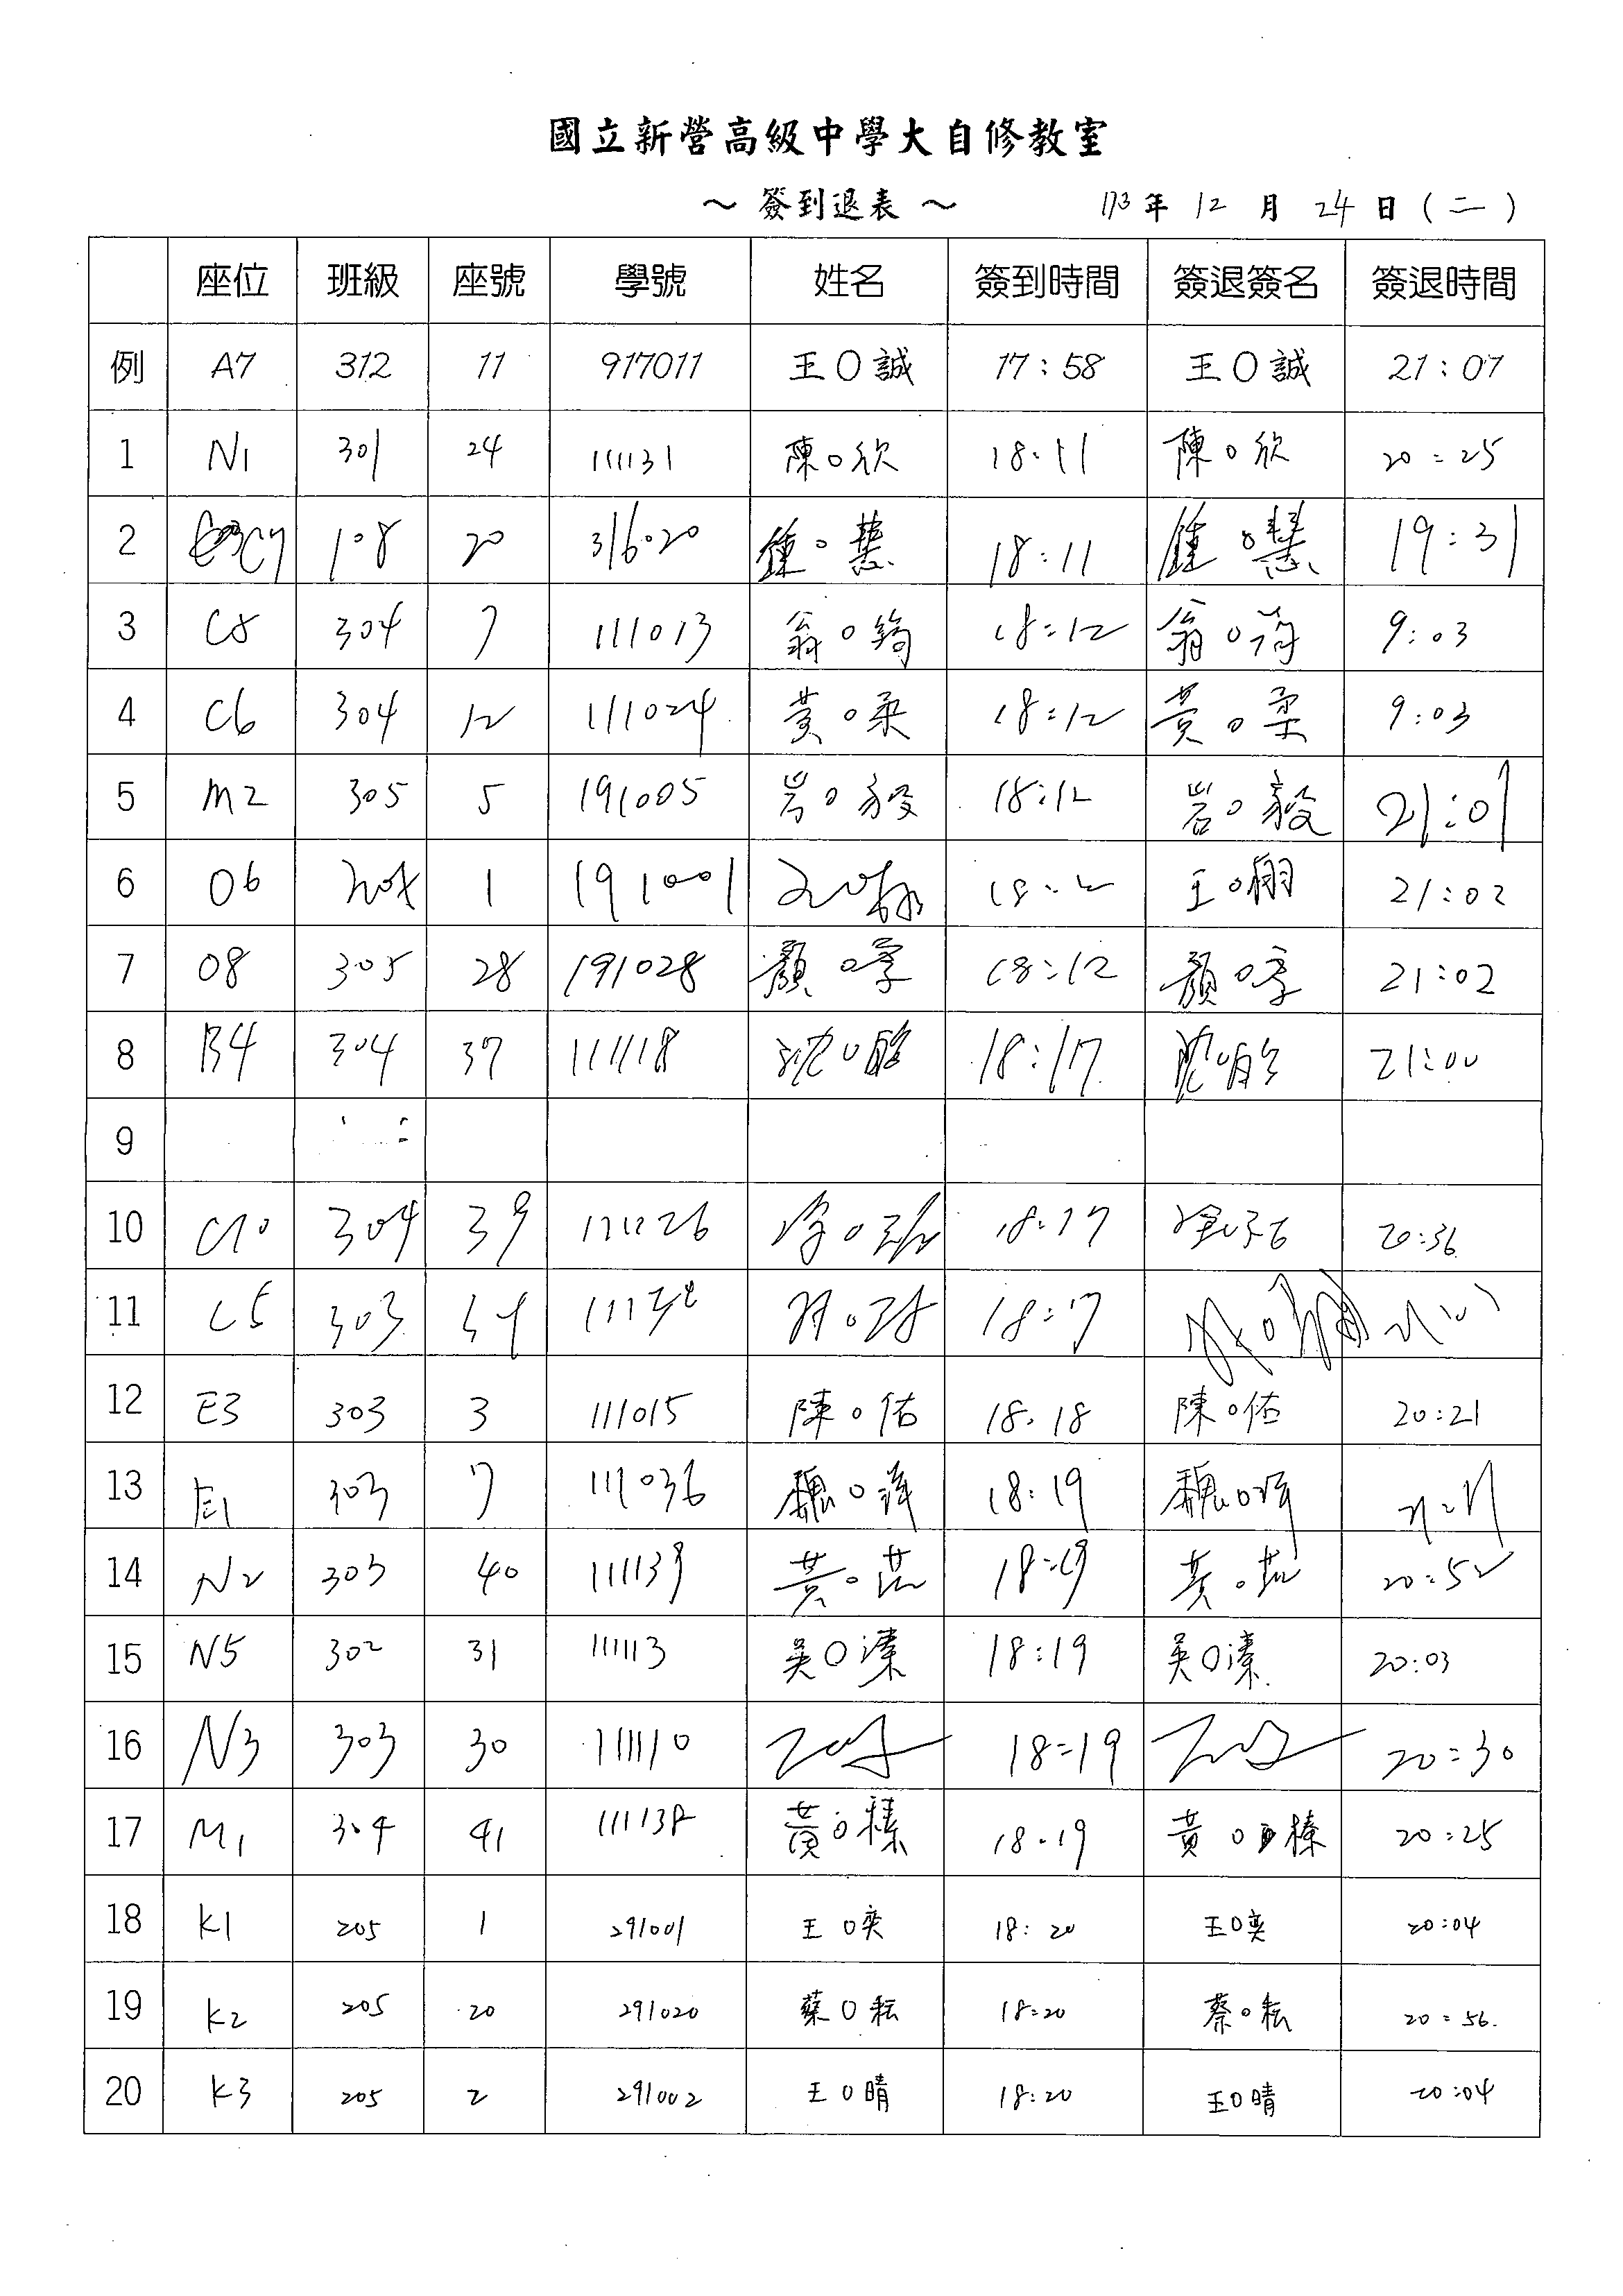 國立新營高級中學大自修教室
～ 簽到退表 ～ 113年 12 月 24 日 ( 二 )
座位 班級 座號 學號 姓名 簽到時間 簽退簽名 簽退時間
例 A7 312 11 917011 王O誠 17:58 王O誠 21:07
1 N1 301 24 111131 陳O欣 18:11 陳O欣 20:25
2 C7 108 20 316020 鍾O慧 18:11 鍾O慧 19:31
3 C8 304 7 111013 翁O 18:12 翁O 9:03
4 C6 304 12 111024 黃O柔 18:12 黃O柔 9:03
5 M2 305 5 191005 岩O毅 18:12 岩O毅 21:01
6 O6 1 191001 王O 21:02
7 O8 305 28 191028 顏O 18:12 顏O 21:02
8 B4 304 37 111118 沈O 18:17 沈O 21:00
9
10 C10 304 39 111126 18:17 20:36
11 C5 303 18:17
12 E3 303 3 111015 陳O佑 18:18 陳O佑 20:21
13 E1 303 7 111036 魏O 18:19 魏O
14 N2 303 40 111139 黃O 18:19 黃O 20:52
15 N5 302 31 111113 吳O溱 18:19 吳O溱 20:03
16 N3 303 30 111110 18:19 20:30
17 M1 304 41 111138 黃O榛 18:19 黃O榛 20:25
18 K1 205 1 291001 王O奕 18:20 王O奕 20:04
19 K2 205 20 291020 蔡O耘 18:20 蔡O耘 20:56
20 K3 205 2 291002 王O晴 18:20 王O晴 20:04